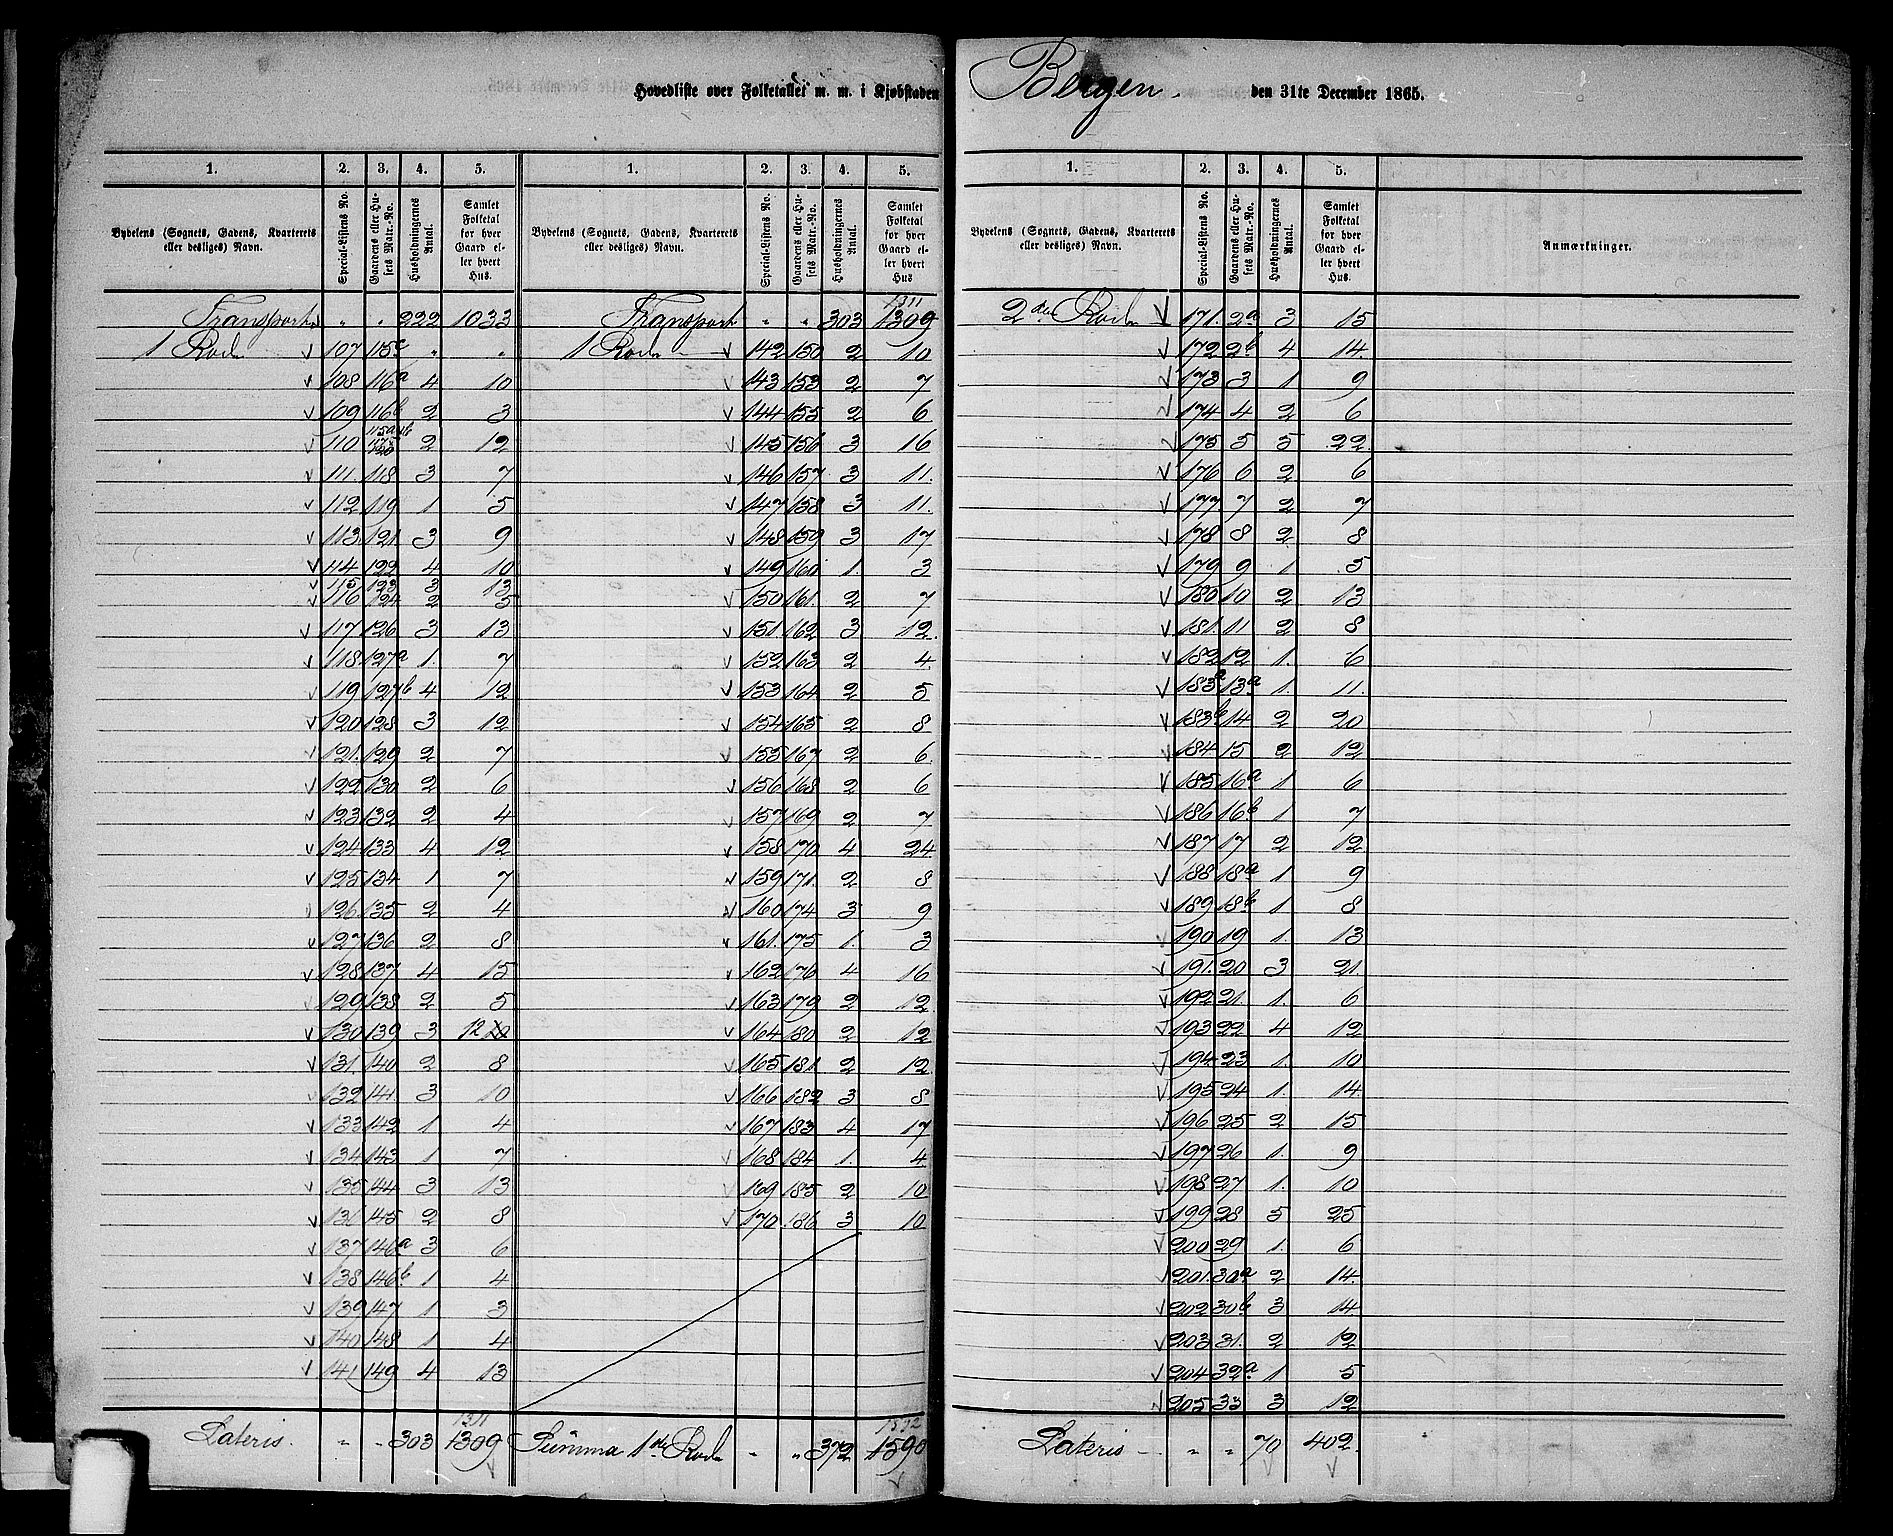 Hovedliste over Folketallet m. m. i Kjøbstaden Bergen. den 31te December 1865.
1. 2. 3. 4. 5.
Bydelens (Sognets, Gadens, Kvarterets eller desliges) Navn. Special-Listens No. Gaardens eller Husets Matr.-No. Husholdningernes Antal. Samlet Folketal for hver Gaard eller hvert Hus.
Transport " " 222 1033
1 Rode 107 115c " "
108 116a 4 10
109 116b 2 3
110 2 12
111. 118 3 7
112 119 1 5
113 121. 3 9
114 122 4 10
115 123 3 13
116 124 2 5
117 126 3 13
118. 127a 1. 7
119 127b 4 12
120 128 3 12
121. 129 2 7
122 130 2 6
123 132 2 4
124 133 4 12
125 134 1 7
126 135 2 4
127 136 2 8
128 137 4 15
129 138 2 5
130 139 3 12
131. 140 2 8
132 141. 3 10
133 142 1 4
134 143 1 7
135 144 3 13
136 145 2 8
137 146a 3 6
138 146b 1 4
139 147 1 3
140 148 1 4
141 149 4 13
1311
Lateris. " " 303 1309
1. 2. 3. 4. 5.
Bydelens (Sognets, Gadens, Kvarterets eller desliges) Navn. Special-Listens No. Gaardens eller Husets Matr.-No. Husholdningernes Antal. Samlet Folketal for hver Gaard eller hvert Hus
1311
Transport " " 303 1309
1 Rode 142 150 2 10
143 153 2 7
144 155 2 6
145 156 3 16
146 157 3 11.
147 158 3 11.
148 159 3 17
149 160 1. 3
150 161. 2 7
151. 162 3 12.
152 163 2 4.
153 164 2 5
154 165 2 8
155 167 2 6.
156 168 2 6
157 169 2 7
158 170 4 24
159 171. 2 8
160 174 3 9
161. 175 1. 3
162 176 4 16
163 179 2 12
164 180 2 12
165 181. 2 12.
166 182 3 8
167 183 4 17
168 184 1. 4
169 185 2 10
170. 186 3 10
1592
Summa 1ste Rode " " 372 1590
1. 2. 3. 4. 5.
Bydelens (Sognets, Gadens, Kvarterets eller desliges) Navn. Special-Listens No. Gaardens eller Husets Matr.-No. Husholdningernes Antal. Samlet Folketal for hver Gaard eller hvert Hus. Anmærkninger.
2den Rode 171. 2a 3 15
172 2b 4 14.
173 3 1 9
174 4 2 6
175 5 5 22
176 6 2 6
177. 7 2 7
178 8 2 8
179 9 1 5
180 10 2 13
181. 11 2 8
182 12 1. 6
183a 13a 1. 11.
183b 14 2 20
184 15 2 12
185 16a 1 6
186 16b 1 7
187 17 2 12
188 18a 1 9
189 18b 1 8
190 19 1. 13
191. 20 3 21.
192 21. 1. 6
193 22 4 12
194 23 1. 10
195 24 1. 14.
196 25 2 15
197 26 1. 9
198 27 1. 10
199 28 5 25
200 29 1. 6
201. 30a 2 14.
202 30b 3 14
203 31. 2 12
204 32a 1 5
205 33 3 12
Lateris " " 70 402.